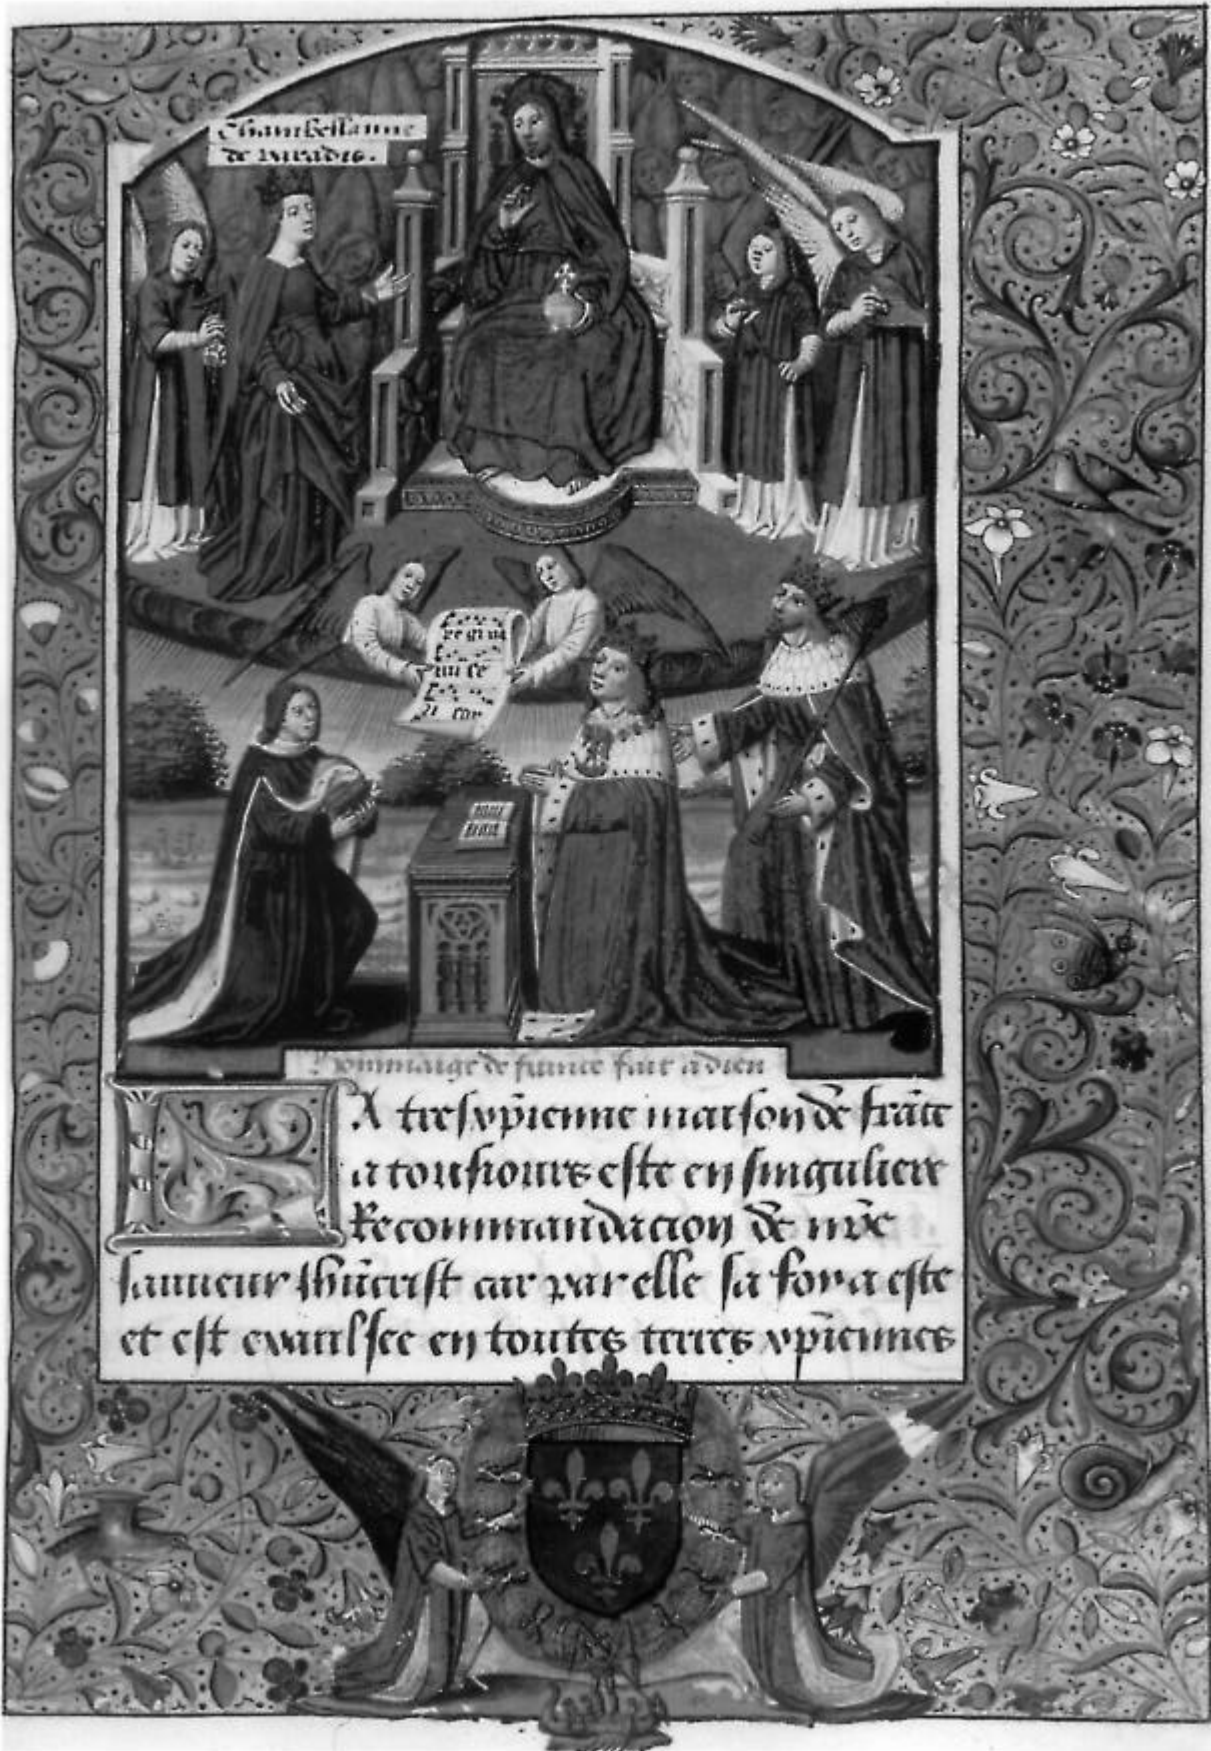 Chambellanne
de paradis.
Regina
celi
Hommaige de france fait a dieu
LA tresxp̄ienne maison de frāce
a tousiours este en singuliere
Recommandacion de nr̄e
sauueur ihūcrist car par elle sa foy a este
et est exaulsee en toutes terres xp̄iennes